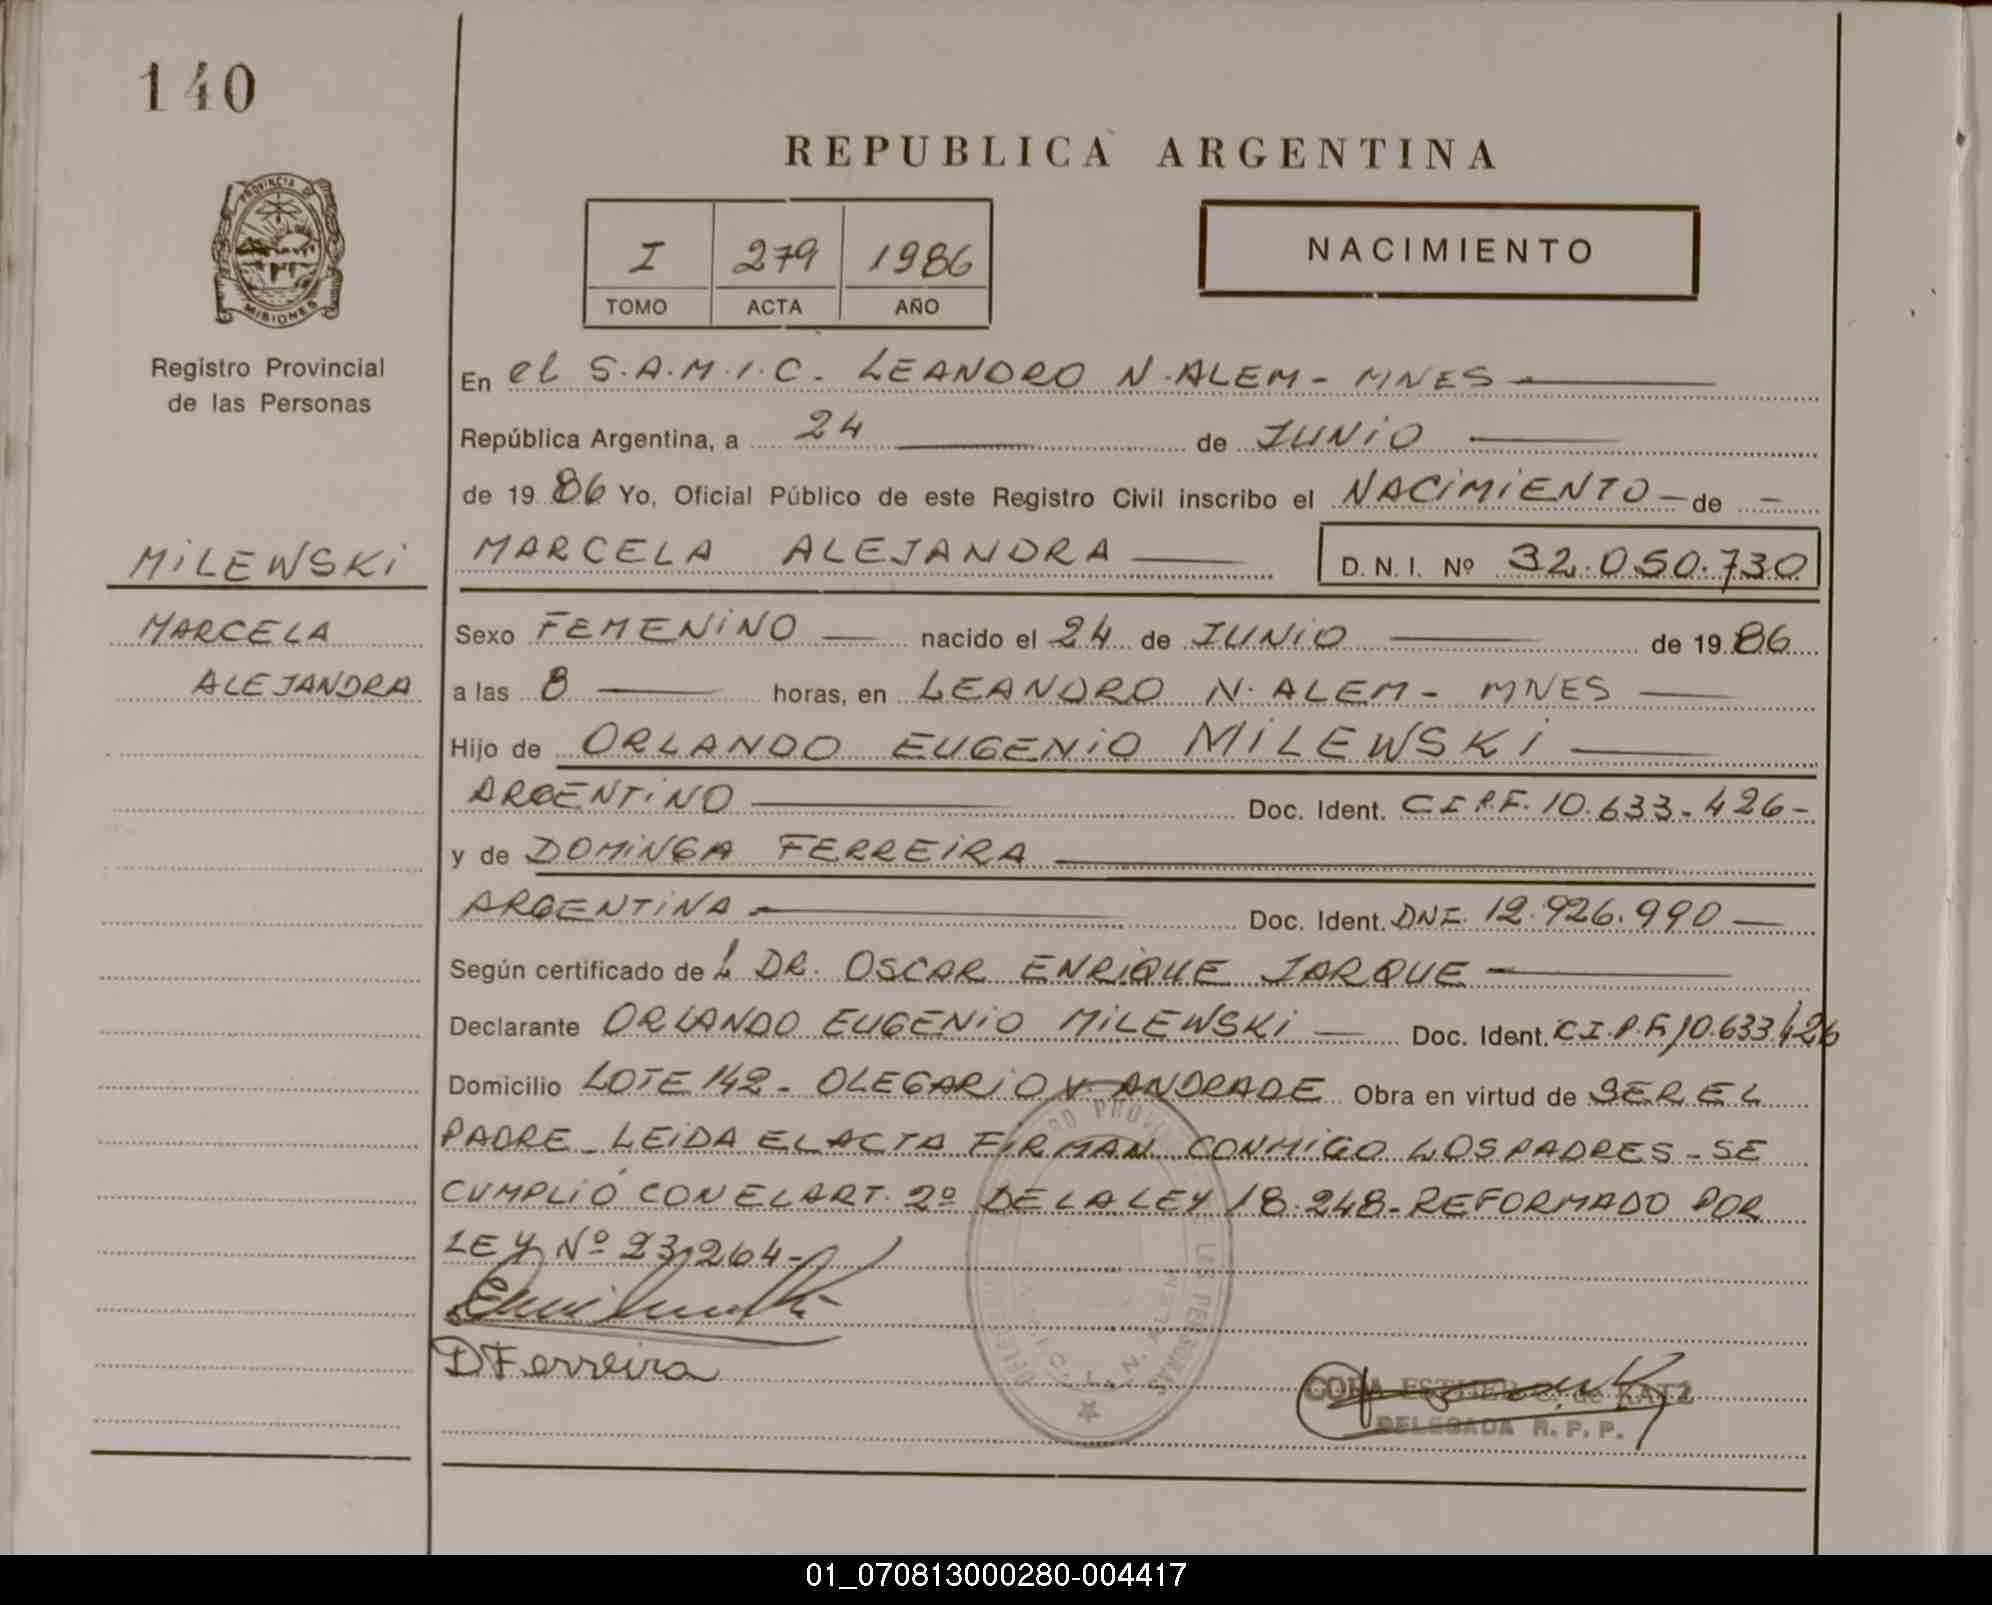 140
REPUBLICA ARGENTINA
PROVINCIA DE
MISIONES
Registro Provincial
de las Personas
I 279 1986
TOMO ACTA AÑO
NACIMIENTO
En el S.A.M.I.C. LEANDRO N. ALEM - MNES
República Argentina, a 24 de JUNIO
de 19 86 Yo, Oficial Público de este Registro Civil inscribo el NACIMIENTO - de -
MILEWSKI
MARCELA ALEJANDRA
D. N. I. Nº 32.050.730
MARCELA
ALEJANDRA
Sexo FEMENINO nacido el 24 de JUNIO de 19 86
a las 8 horas, en LEANDRO N. ALEM - MNES
Hijo de ORLANDO EUGENIO MILEWSKI
ARGENTINO Doc. Ident. C I P.F. 10.633-426-
y de DOMINGA FERREIRA
ARGENTINA Doc. Ident. DNI. 12.926.990
Según certificado de L DR. OSCAR ENRIQUE JARQUE
Declarante ORLANDO EUGENIO MILEWSKI Doc. Ident. C.I.P.F. 10.633.426
Domicilio LOTE 142 - OLEGARIO V. ANDRADE Obra en virtud de SER EL
PADRE - LEIDA EL ACTA FIRMAN CONMIGO LOS PADRES - SE
CUMPLIÓ CON EL ART. 2º DE LA LEY 18.248 - REFORMADO POR
LEY Nº 23.264 -
D Ferreira
CORA ESTHER C. de KATZ
DELEGADA R. P. P.
01_070813000280-004417